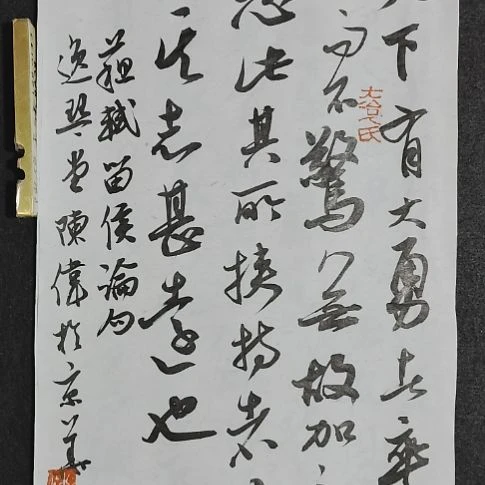 下有大勇者卒
而不驚無故加
此其所挾持者
其志甚遠也
蘇軾留侯論句
逸琴堂陳偉於京華
大冶人氏